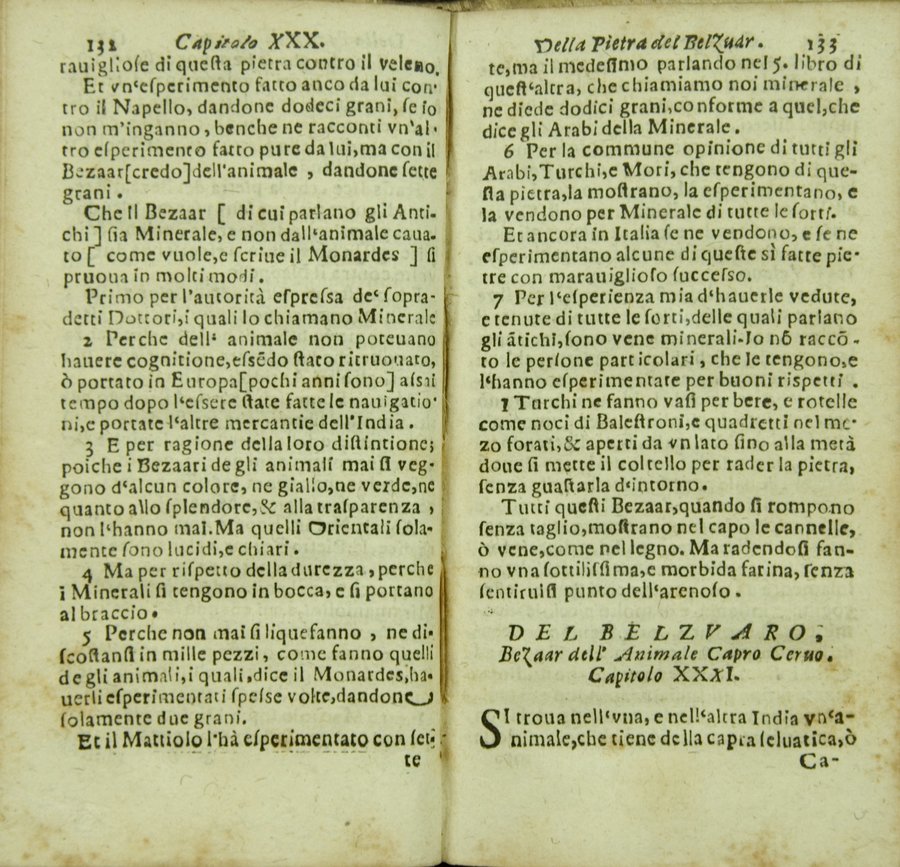 132 Capitolo XXX.
rauigliose di questa pietra contro il veleno.
Et vn'esperimento fatto anco da lui con-
tro il Napello, dandone dodeci grani, se io
non m'inganno, benche ne racconti vn'al-
tro esperimento fatto pure da lui, ma con il
Bezaar[credo]dell'animale, dandone sette
grani.
Che il Bezaar [ di cui parlano gli Anti-
chi ] sia Minerale, e non dall'animale caua-
to [ come vuole, e scriue il Monardes ] si
pruoua in molti modi.
Primo per l'autorità espressa de' sopra-
detti Dottori, i quali lo chiamano Minerale
2 Perche dell' animale non poteuano
hauere cognitione, essēdo stato ritruouato,
ò portato in Europa[pochi anni sono] assai
tempo dopo l'essere state fatte le nauigatio-
ni, e portate l'altre mercantie dell'India.
3 E per ragione della loro distintione;
poiche i Bezaari de gli animali mai si veg-
gono d'alcun colore, ne giallo, ne verde, ne
quanto allo splendore, & alla trasparenza,
non l'hanno mai. Ma quelli Orientali sola-
mente sono lucidi, e chiari.
4 Ma per rispetto della durezza, perche
i Minerali si tengono in bocca, e si portano
al braccio.
5 Perche non mai si liquefanno, ne di-
scostansi in mille pezzi, come fanno quelli
de gli animali, i quali, dice il Monardes, ha-
uerli esperimentati spesse volte, dandone
solamente due grani.
Et il Mattiolo l'hà esperimentato con set-
te
Della Pietra del Belzuar. 133
te, ma il medesimo parlando nel 5. libro di
quest'altra, che chiamiamo noi minerale,
ne diede dodici grani, conforme a quel, che
dice gli Arabi della Minerale.
6 Per la commune opinione di tutti gli
Arabi, Turchi, e Mori, che tengono di que-
sta pietra, la mostrano, la esperimentano, e
la vendono per Minerale di tutte le sorti.
Et ancora in Italia se ne vendono, e se ne
esperimentano alcune di queste sì fatte pie-
tre con marauiglioso successo.
7 Per l'esperienza mia d'hauerle vedute,
e tenute di tutte le sorti, delle quali parlano
gli ātichi, sono vene minerali. Io nō raccō-
to le persone particolari, che le tengono, e
l'hanno esperimentate per buoni rispetti.
I Turchi ne fanno vasi per bere, e rotelle
come noci di Balestroni, e quadretti nel me-
zo forati, & aperti da vn lato sino alla metà
doue si mette il coltello per rader la pietra,
senza guastarla d'intorno.
Tutti questi Bezaar, quando si rompono
senza taglio, mostrano nel capo le cannelle,
ò vene, come nel legno. Ma radendosi fan-
no vna sottilissima, e morbida farina, senza
sentiruisi punto dell'arenoso.
DEL BELZVARO,
Bezaar dell' Animale Capro Ceruo.
Capitolo XXXI.
SI troua nell'vna, e nell'altra India vn'a-
nimale, che tiene della capra seluatica, ò
Ca-